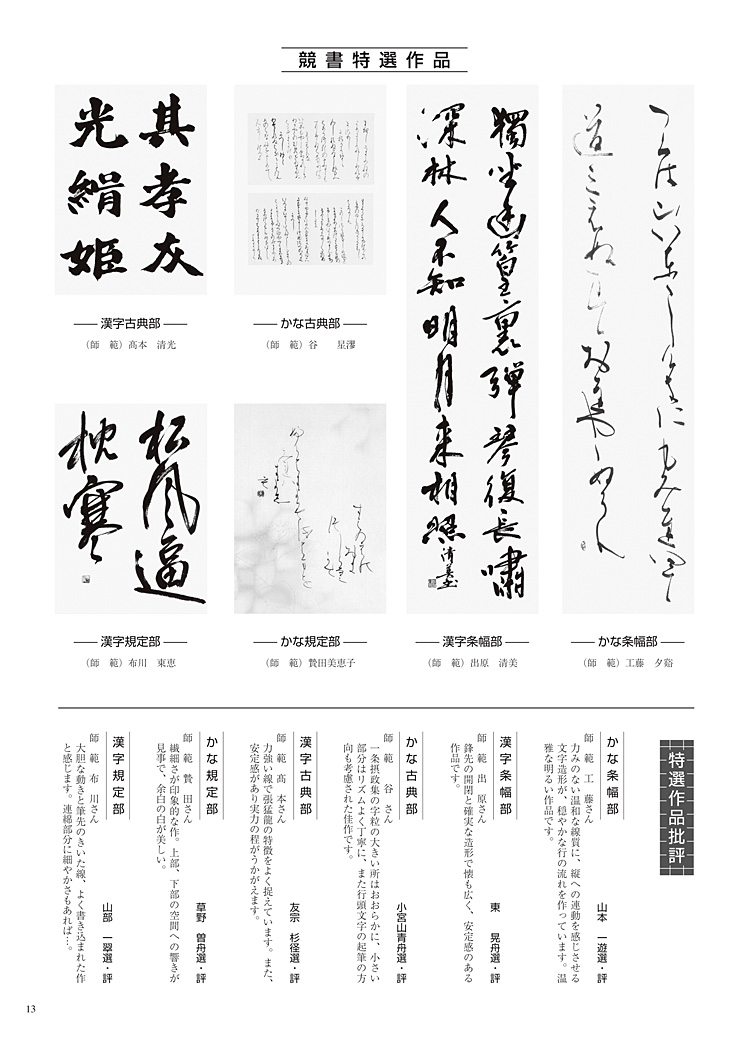 競書特選作品
其孝友
光絹姫
漢字古典部
（師　範）髙本　清光
かな古典部
（師　範）谷　　星漻
獨坐幽篁裏彈琴復長嘯
深林人不知明月来相照
漢字条幅部
（師　範）出原　清美
かな条幅部
（師　範）工藤　夕谿
松風逼
枕寒
漢字規定部
（師　範）布川　東恵
かな規定部
（師　範）贊田美恵子
特選作品批評
かな条幅部
山本　一遊選・評
師　範　工　藤さん
力みのない温和な線質に、縦への連動を感じさせる
文字造形が、穏やかな行の流れを作っています。温
雅な明るい作品です。
漢字条幅部
東　　晃舟選・評
師　範　出　原さん
鋒先の開閉と確実な造形で懐も広く、安定感のある
作品です。
かな古典部
小宮山青舟選・評
師　範　谷　さん
一条摂政集の字粒の大きい所はおおらかに、小さい
部分はリズムよく丁寧に、また行頭文字の起筆の方
向も考慮された佳作です。
漢字古典部
友宗　杉径選・評
師　範　髙　本さん
力強い線で張猛龍の特徴をよく捉えています。また、
安定感があり実力の程がうかがえます。
かな規定部
草野　曽舟選・評
師　範　贊　田さん
繊細さが印象的な作。上部、下部の空間への響きが
見事で、余白の白が美しい。
漢字規定部
山部　一翠選・評
師　範　布　川さん
大胆な動きと筆先のきいた線、よく書き込まれた作
と感じます。連綿部分に細やかさもあれば…。
13